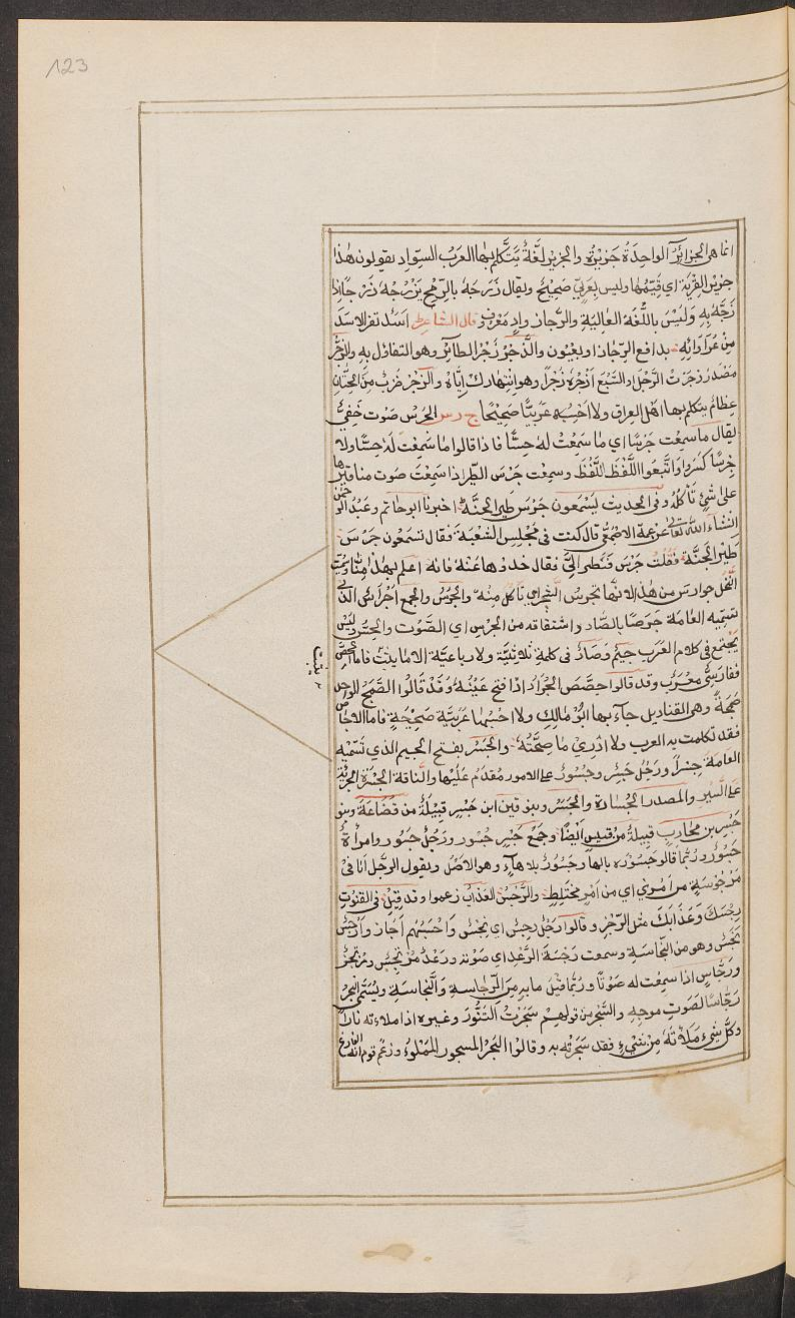 123
انما هى الجزائر الواحدة جزيرة والجزير لغة يتكلم بها العرب السواد يقولون هذا
جزير القرية اى قيمها وليس بعربى صحيح ويقال زرجه بالرمح يزرجه زرجا اذا
زجه به وليس باللغة العالية والزجاز واد معروف قال الشاعر اسد تفر الاسد
من عروائه بدافع الرجاز او بعيون والزجر زجر الطائر وهو التفاؤل به والزجر
مصدر زجرت الرجل والسبع ازجره زجرا وهو انتهارك اياه والزجر ضرب من الحيتان
عظام يتكلم بها اهل العراق ولا احسبه عربيا صحيحا ج رس الجرس صوت خفى
يقال ما سمعت جرسا اى ما سمعت له حسا فاذا قالوا ما سمعت له حسا ولا
جرسا كسروا واتبعوا اللفظ اللفظ وسمعت جرس الطير اذا سمعت صوت مناقيرها
على شئ تأكله وفى الحديث يسمعون جرس طير الجنة اخبرنا ابو حاتم وعبد الرحمن
انشاء الله تعالى عن عمه الاصمعى قال كنت فى مجلس الشعبة فقال تسمعون جرس
طير الجنة فقلت جرس فنظر الى فقال خذوها عنه فانه اعلم بهذا منا وسميت
النحل جوارس من هذا لانها تجرس الشجر اى تأكل منه والجرس والجمع اجراس الذى
تسميه العامة جرصا بالصاد واشتقاقه من الجرس اى الصوت والحس وليس
يجتمع فى كلام العرب جيم وصاد فى كلمة ثلاثية ولا رباعية الا ما يثبت فاما الجص
ففارسى معرب وقد قالوا جصص الجرو اذا فتح عينه وقد قالوا الصمج الواحد
صمجة وهى القناديل جاء بها ابو مالك ولا احسبها عربية صحيحة فاما الاجاص
فقد تكلمت به العرب ولا ادرى ما صحته والجسر بفتح الجيم الذى تسميه
العامة جسرا ورجل جسر وجسور على الامور مقدم عليها والناقة الجسرة الجرية
على السير والمصدر الجسارة والجسر وبنو قين ابن جسر قبيلة من قضاعة وبنو
جسر بن محارب قبيلة من قيس ايضا وجمع جسر جسور ورجل جسور وامرأة
جسور وربما قالو جسوره بالها وجسور بلا هاء وهو الاصل ويقول الرجل انا فى
مرجوسة من امورى اى من امر مختلط والرجس العذاب زعموا وقد قيل فى القنوت
رجسك وعذابك مثل الرجز وقالوا رجل رجس اى نجس واحسبهم اجاز وارجس
نجس وهو من النجاسة وسمعت رجسة الرعد اى صوته ورعد مرتجس ومرتجز
ورجاس اذا سمعت له صوتا وربما قيل ما به من الرجاسة والنجاسة ويسمى البحر
رجاسا لصوت موجه والسجر من قولهم سجرت التنور وغيره اذا ملاءته نارا
وكل شىء ملاءته من شىء فقد سجرته به وقالوا البحر المسجور المملوء وزعم قوم انه الفارغ
يثبت